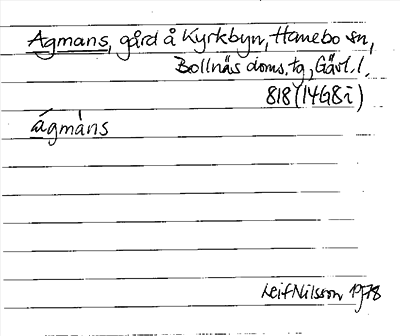 Agmans, gård å Kyrkbyn, Hanebo sn,
Bollnäs doms.tg, Gävl. l.
818 (14G8i)
ágmàns
Leif Nilsson 1978